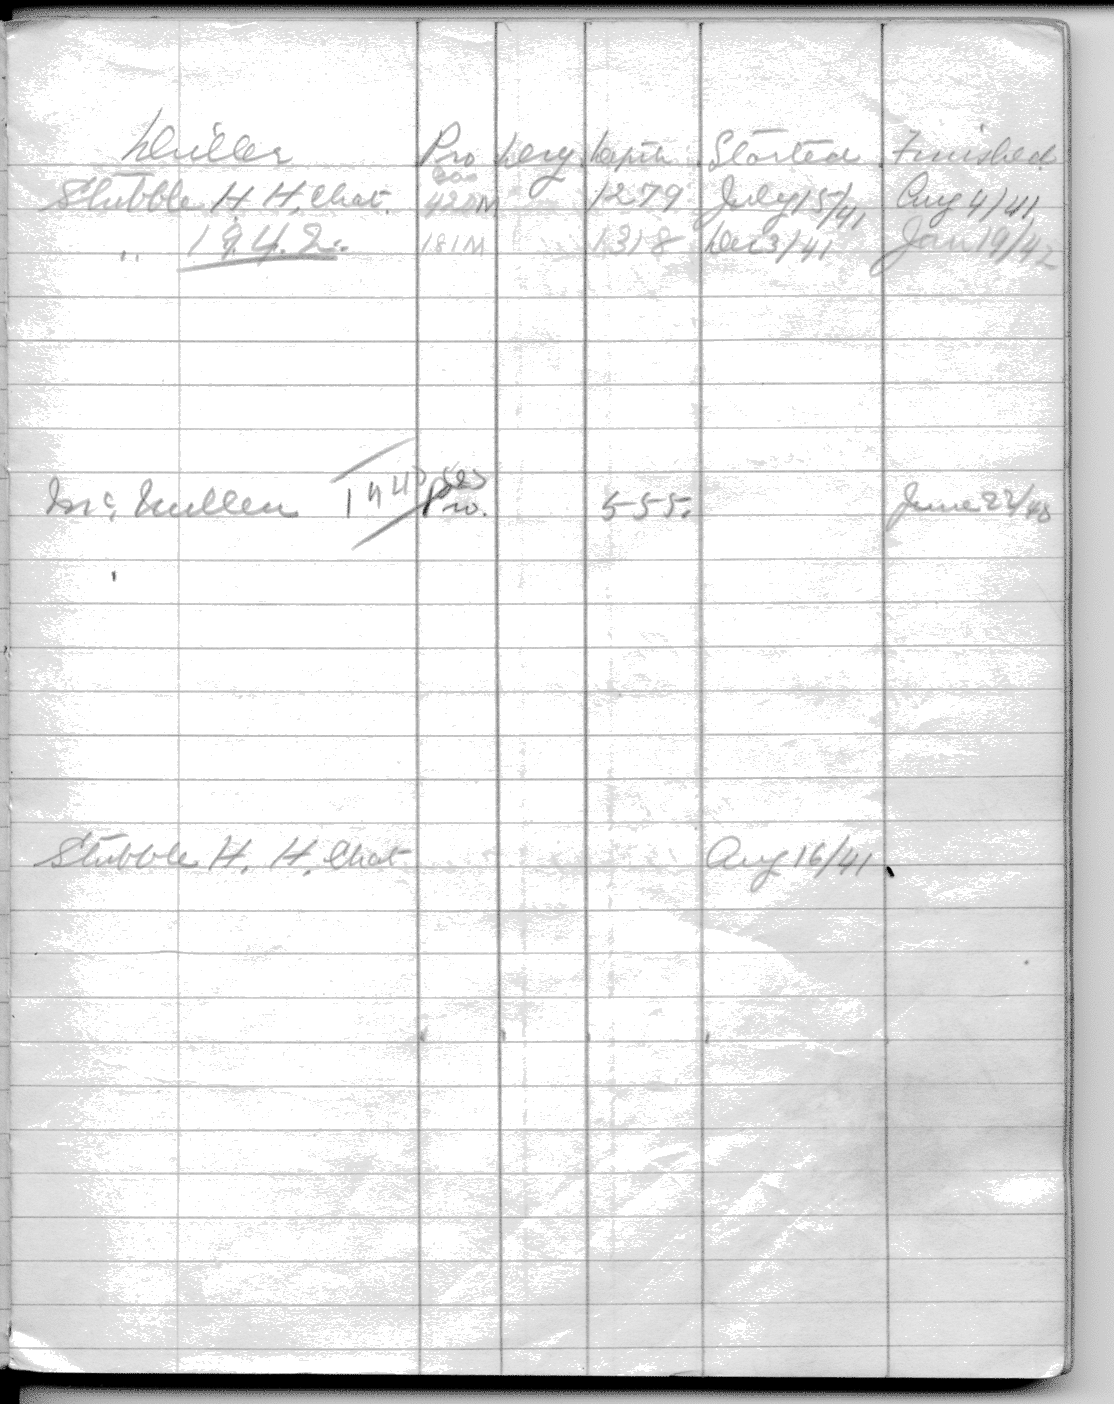 Driller Pro Dry Depth Started Finished
Gas
Stubble H. H. Chat. 420M 1279 July 15/41 Aug 4/41
" 1942. 181M 1318 Dec 3/41 Jan 19/42
Gas
Mc. Mullen Pro. 555. June 22/40
Stubble H. H. Chat Aug 16/41